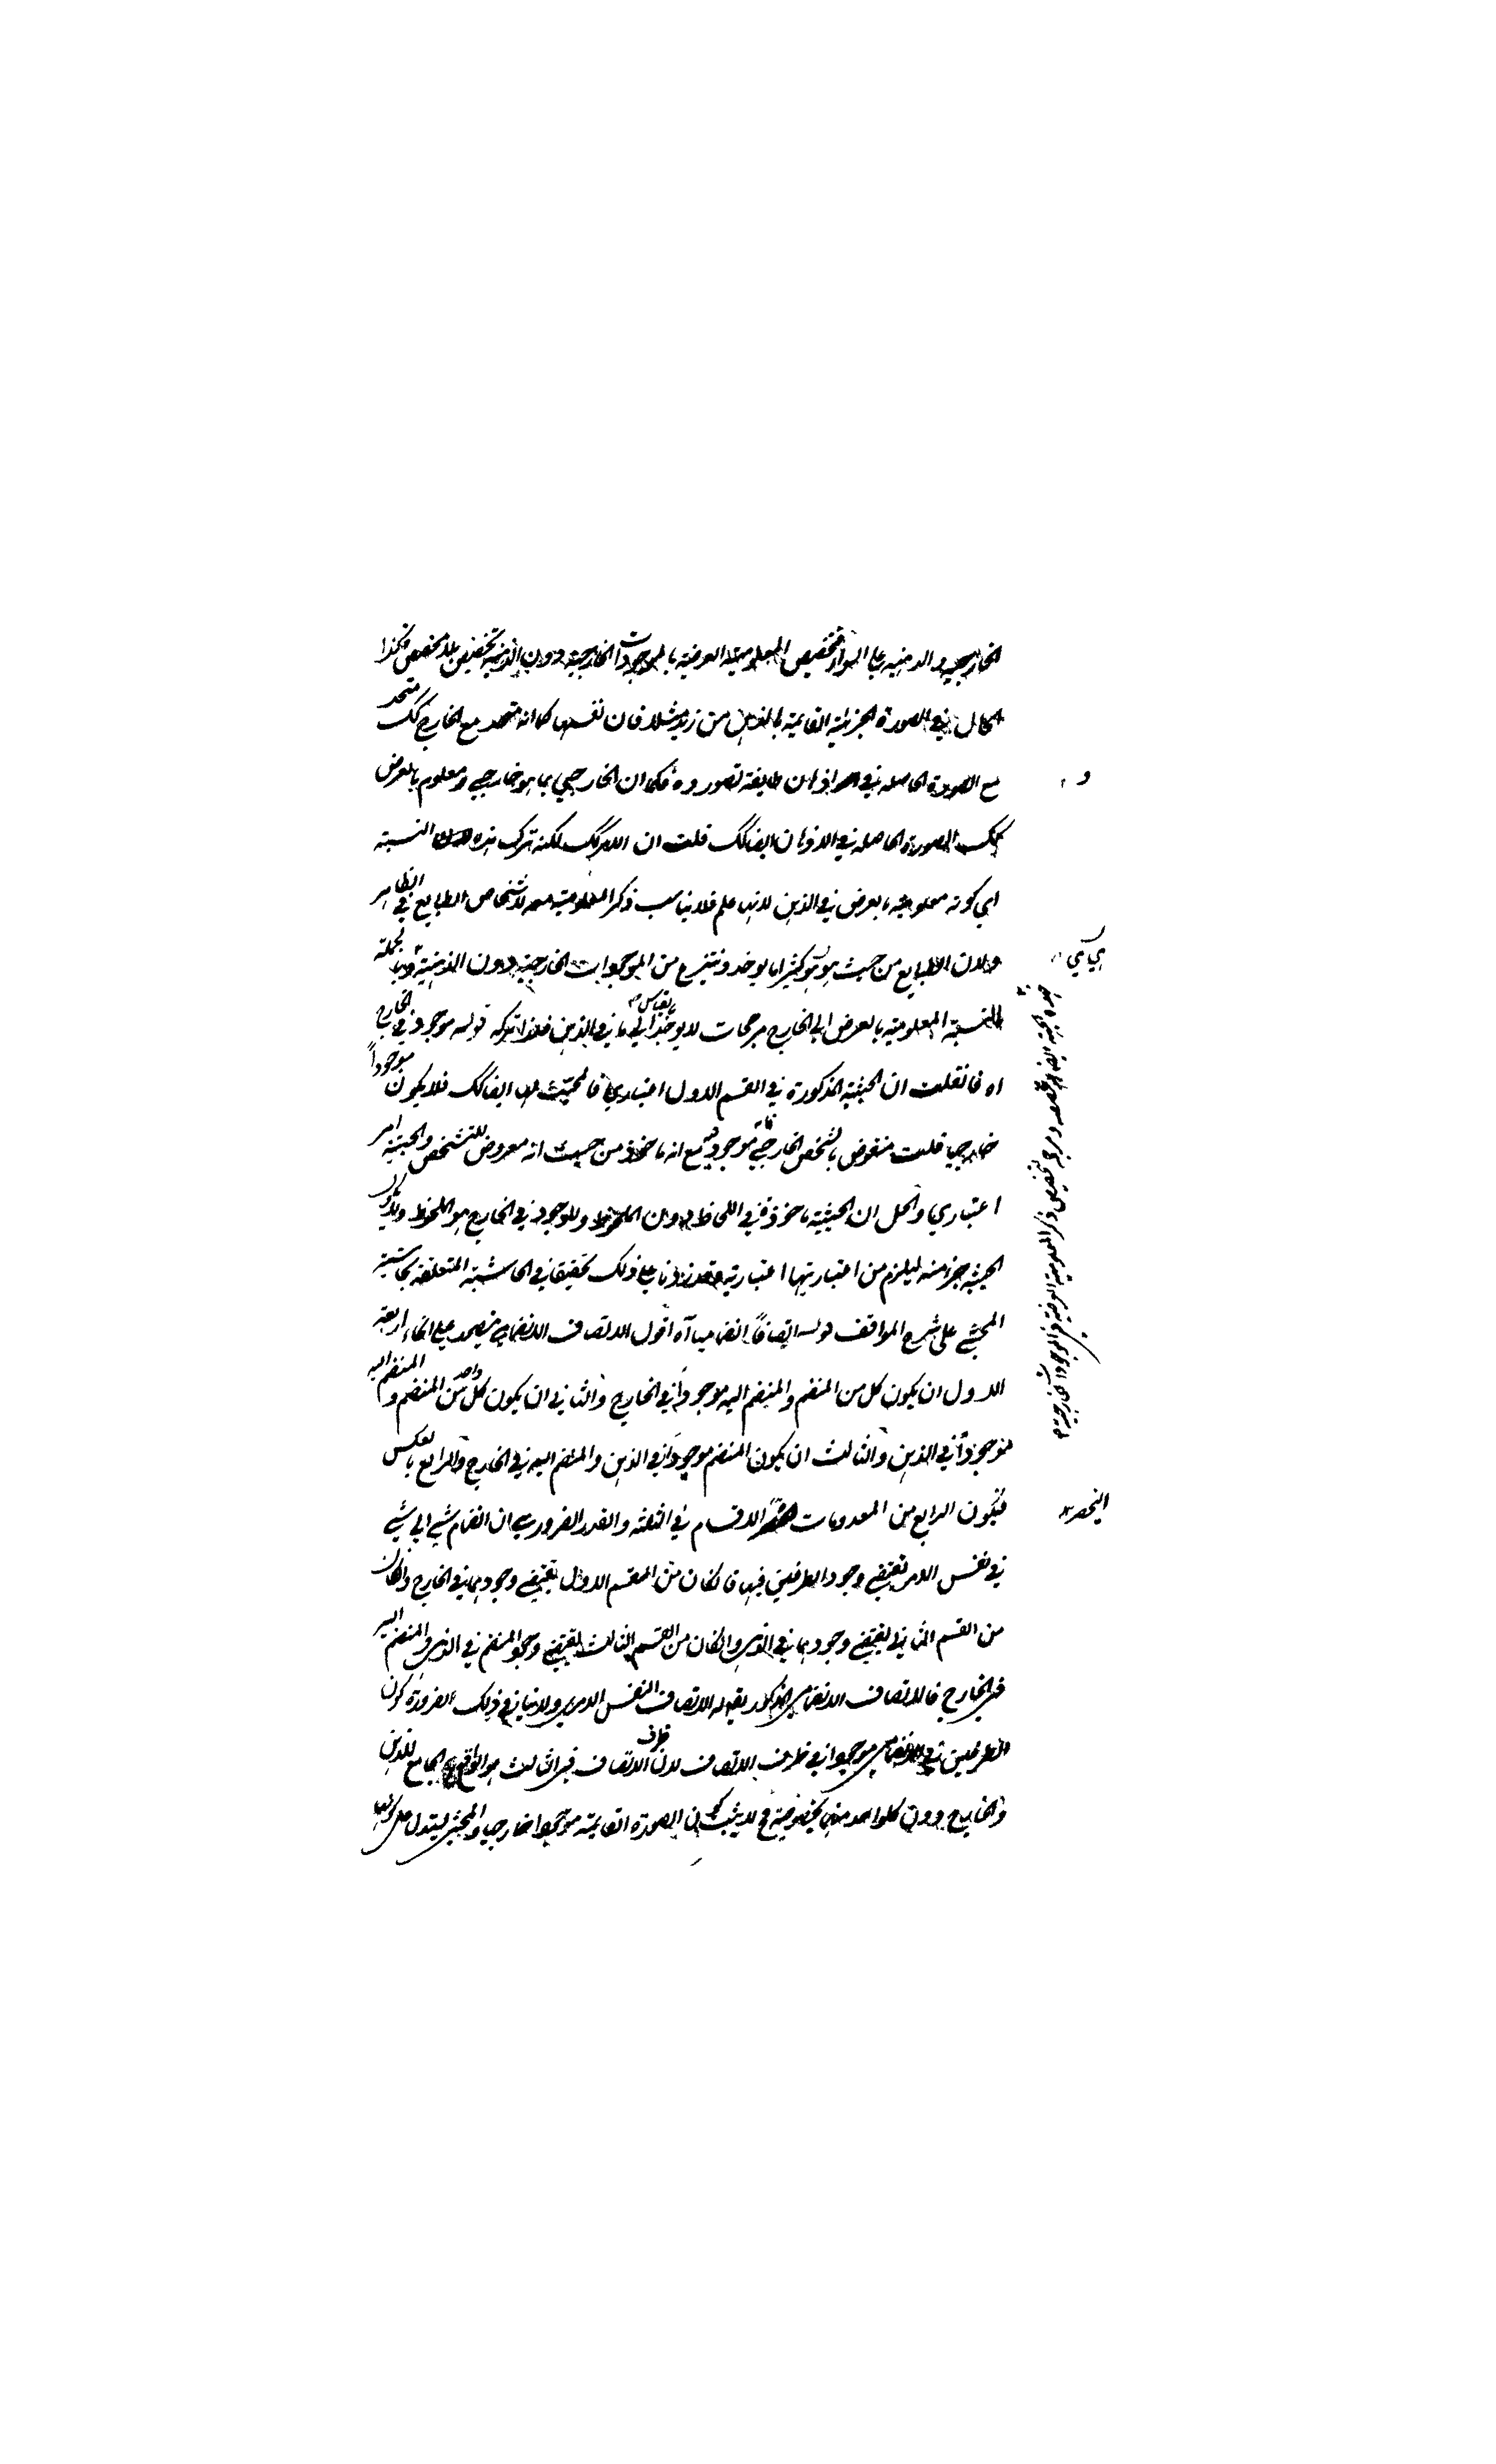 الخارجية والذهنية على السواء فتخصيص المعلومية العرضية بالموجودات الخارجية دون الذهنية تخصيص بلا مخصص فكذا
الحال في الصورة الجزئية القايمة بالذهن من زيد مثلا فان نفسها كما انه متحد مع الخارج كك متحد
مع الصورة الحاصلة في اذهان طايفة تصوروه فكما ان الخارجي بما هو خارجي ومعلوم بالعرض
كك الصورة الحاصلة في الاذهان ايضا كك قلت ان الامر كك لكنه ترك هذه النسبة
اي كونه معلومية بالعرض في الذهن لانها علم فلا يناسب ذكر المعلومية معه لاشخاص الطبايع في الظاهر
ولان الطبايع من حيث هي هي كثيرا ما يوخذ وينتزع من الموجودات الخارجية دون الذهنية وبالجملة
لنسبة المعلومية بالعرض الى الخارج مرجحات لا يوخذ بالقياس الى ما في الذهن فلذا تركه قوله موجودة في الخارج
اه فان قلت ان الحيثية المذكورة في القسم الاول اعتباري فالمحيث بها ايضا كك فلا يكون موجودا
خارجيا قلت منقوض بالشخص الخارجي فانه موجود فيه مع انه ماخوذ من حيث انه معروض للتشخص والحيثية امر
اعتباري والحل ان الحيثية ماخوذة في اللحاظ دون الملحوظ والموجود في الخارج هو الملحوظ ولا يكون
الحيثية جزء منه ليلزم من اعتباريتها اعتباريته وقد زدنا على ذلك تحقيقا في الحاشية المتعلقة بحاشية
المحشي على شرح المواقف قوله اتصافا انضماميا آه اقول الاتصاف الانضمامي منحصر على انحاء اربعة
الاول ان يكون كل من المنضم والمنضم اليه موجودا في الخارج والثاني ان يكون كل واحد من المنضم والمنضم اليه
موجودا في الذهن والثالث ان يكون المنضم موجودا في الذهن والمنضم اليه في الخارج والرابع بالعكس
فيكون الرابع من المعدومات الاقسام في الثلثة والقدر الضروري ان انضمام شي الى شي
في نفس الامر يقتضي وجود الطرفين فيها فان كان من القسم الاول يقتضي وجودهما في الخارج وان كان
من القسم الثاني يقتضي وجودهما في الذهن وان كان من القسم الثالث يقتضي وجود المنضم في الذهن والمنضم اليه
في الخارج فالاتصاف الانضمامي المذكور بقوله الاتصاف النفس الامري ولا ينافي ذلك الضرورة كون
الطرفين في الانضمامي موجودا في ظرف الاتصاف لان ظرف الاتصاف في الثالث هو الواقع الجامع للذهن
والخارج دون كل واحد منهما بخصوصية فح لا يثبت كون الصورة القايمة موجودا خارجيا والمحشي ليتدل على كونها
و
اي كي
انحصر